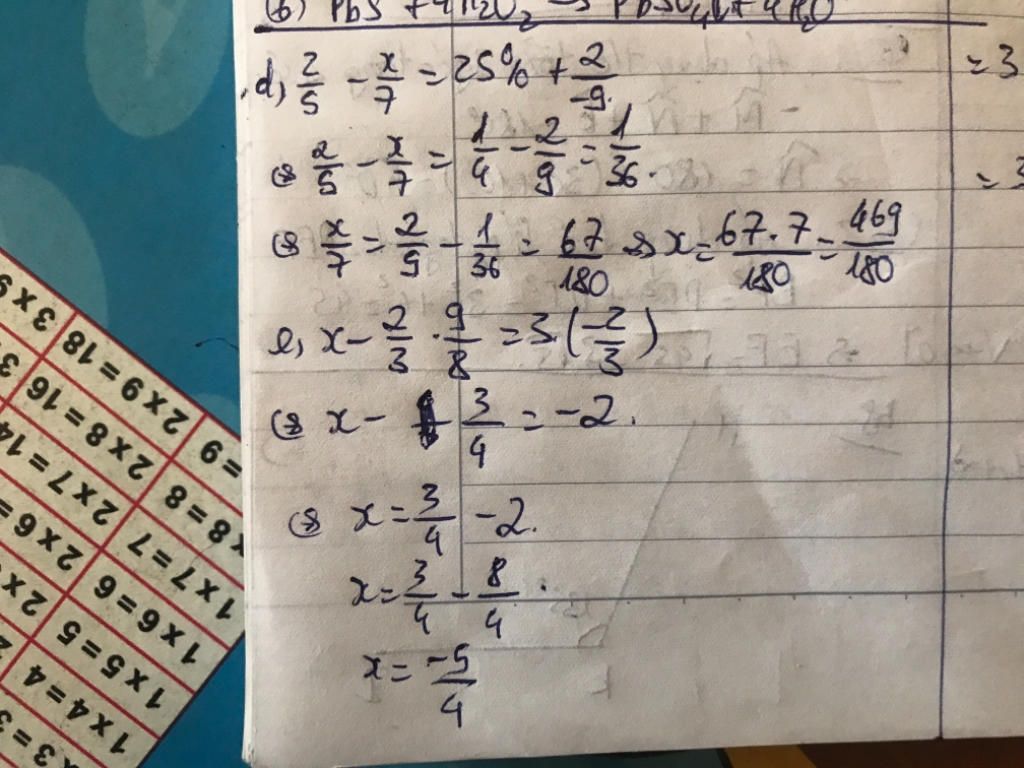 (6) PbS + 4H2O2 → PbSO4↓ + 4H2O
d, 2/5 - x/7 = 25% + 2/-9
⇔ 2/5 - x/7 = 1/4 - 2/9 = 1/36.
⇔ x/7 = 2/5 - 1/36 = 67/180 ⇔ x = 67.7/180 = 469/180
e, x - 2/3 . 9/8 = 3.(-2/3)
⇔ x - 3/4 = -2.
⇔ x = 3/4 - 2.
x = 3/4 - 8/4.
x = -5/4
= 3
= 3
3 x 9
2 x 9 = 18
= 9
2 x 8 = 16
x 8 = 8
2 x 7 = 14
1 x 7 = 7
2 x 6 =
1 x 6 = 6
1 x 5 = 5
1 x 4 = 4
x 3 = 3